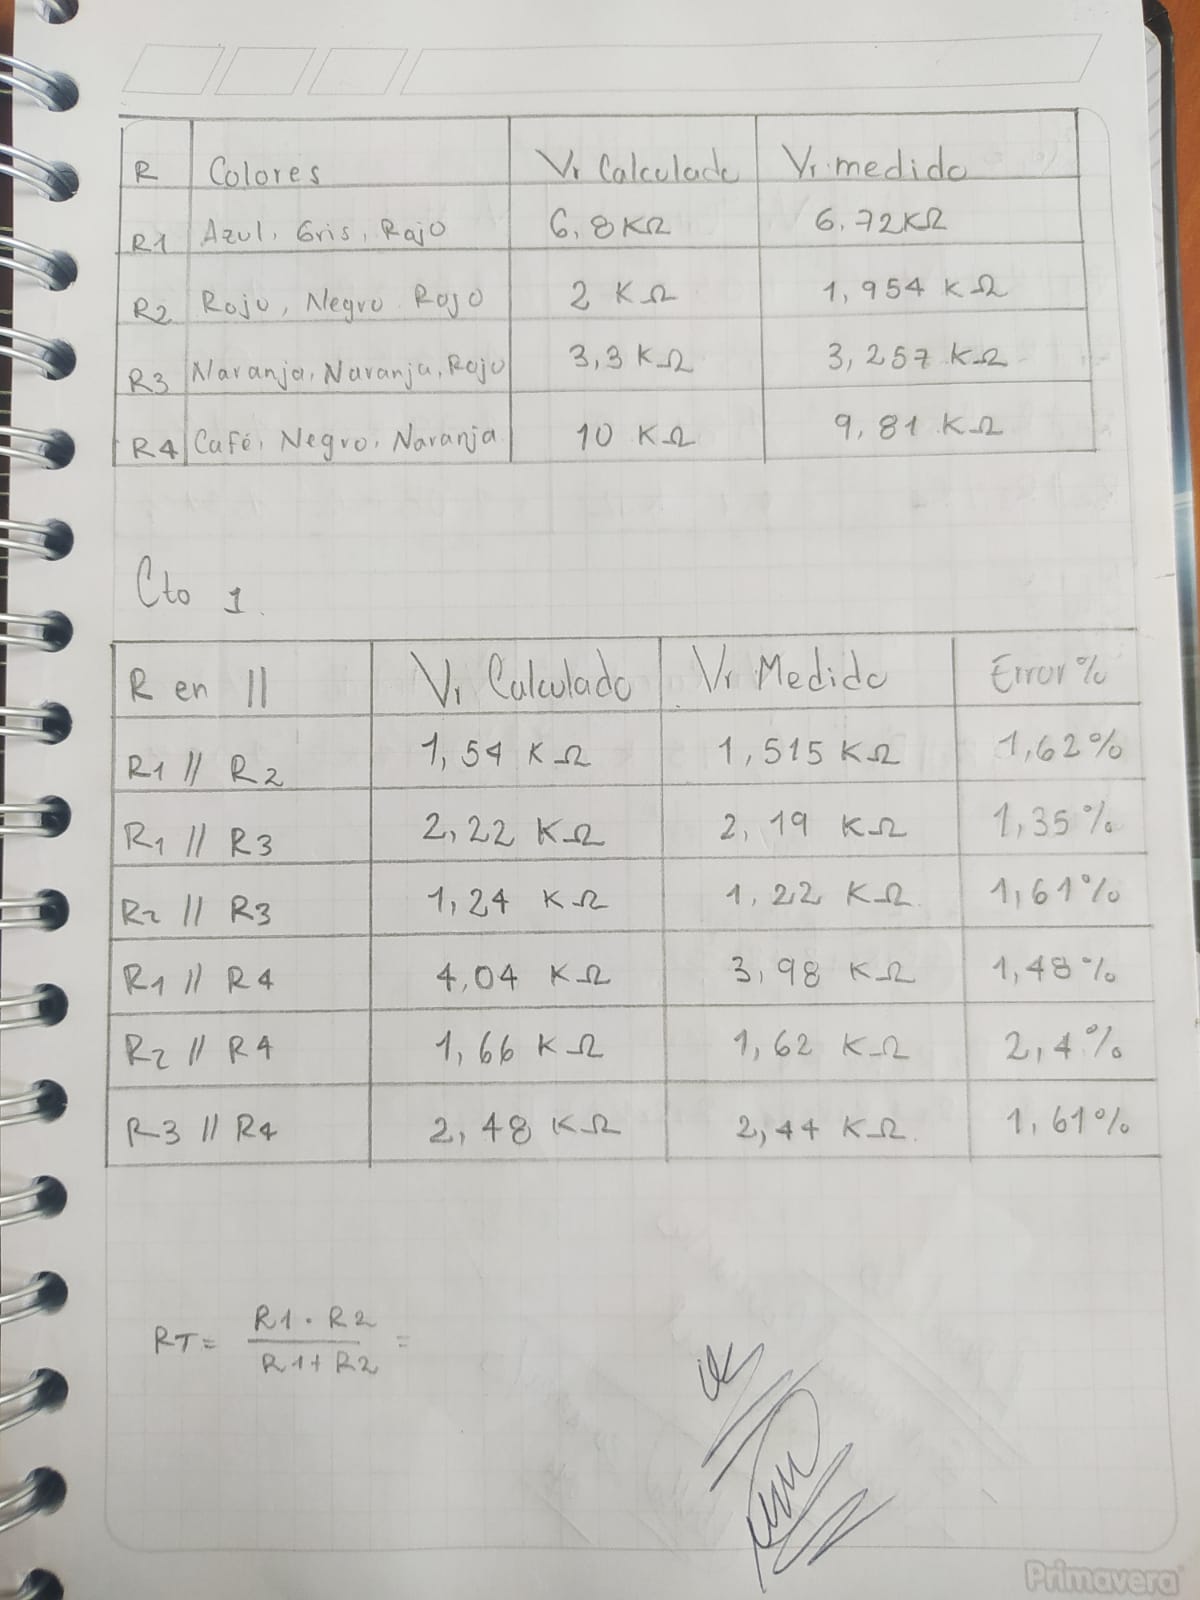 R Colores Vr Calculado Vr medido
R1 Azul, Gris, Rojo 6,8KΩ 6,72KΩ
R2 Rojo, Negro Rojo 2 KΩ 1,954 KΩ
R3 Naranja, Naranja, Rojo 3,3 KΩ 3,257 KΩ
R4 Café, Negro, Naranja 10 KΩ 9,81 KΩ
Cto 1.
R en || Vr Calculado Vr Medido Error %
R1 // R2 1,54 KΩ 1,515 KΩ 1,62%
R1 // R3 2,22 KΩ 2,19 KΩ 1,35%
R2 // R3 1,24 KΩ 1,22 KΩ 1,61%
R1 // R4 4,04 KΩ 3,98 KΩ 1,48%
R2 // R4 1,66 KΩ 1,62 KΩ 2,4%
R3 // R4 2,48 KΩ 2,44 KΩ 1,61%
R1 . R2
RT= =
R1+R2
Primavera